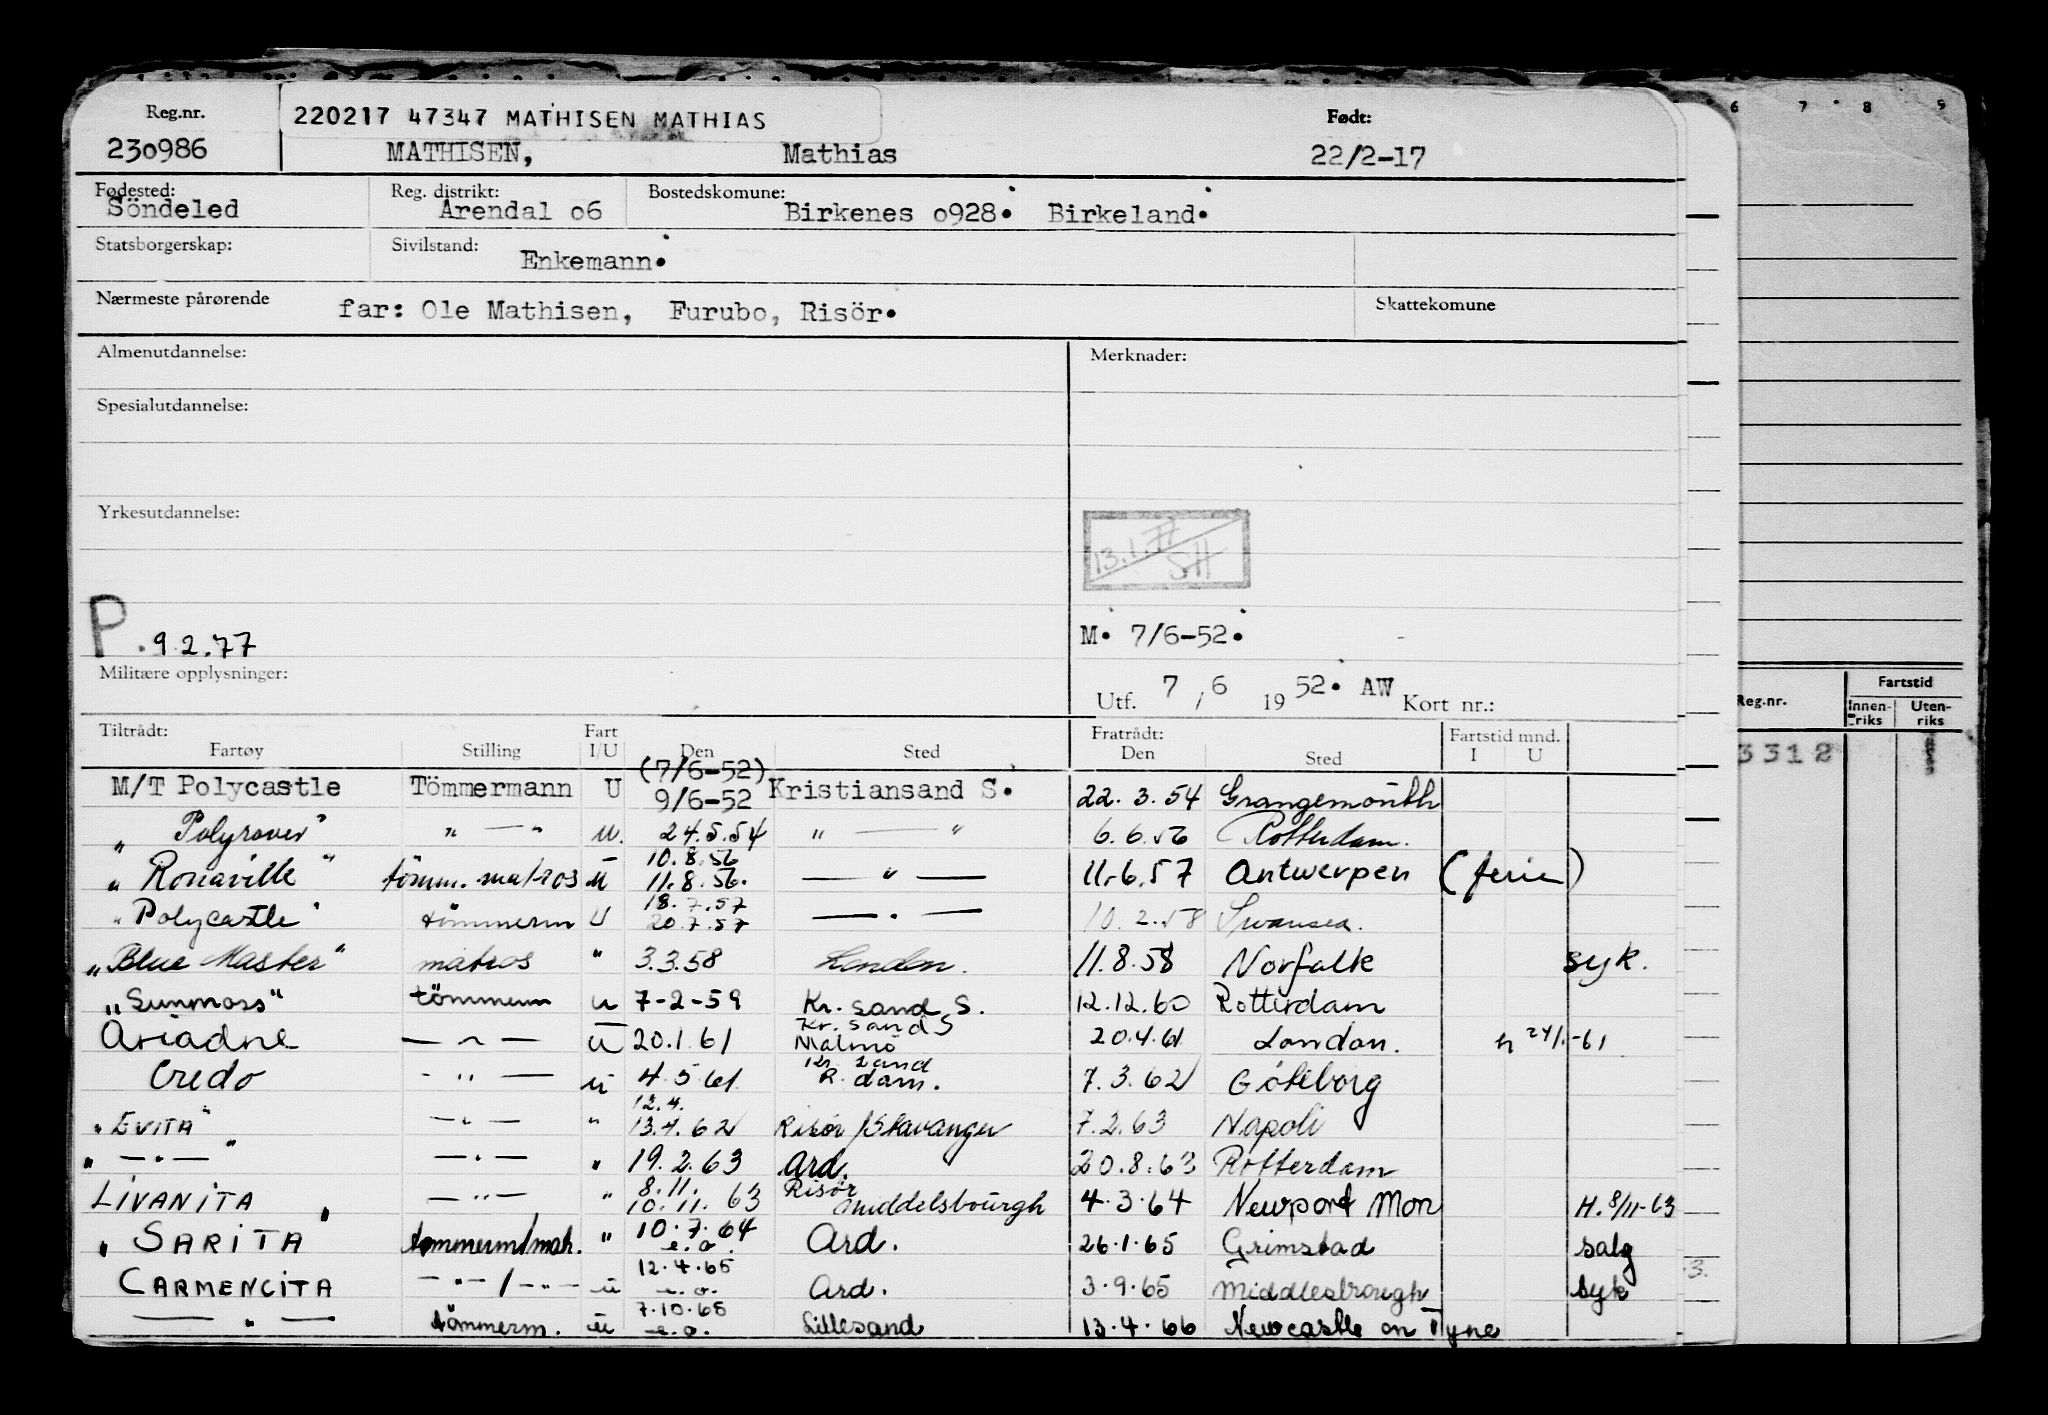 6 7 8 9
Reg.nr. 220217 47347 MATHISEN MATHIAS Født:
230986 MATHISEN, Mathias 22/2-17
Fødested: Reg. distrikt: Bostedskomune:
Söndeled Arendal o6 Birkenes o928. Birkeland.
Statsborgerskap: Sivilstand:
Enkemann.
Nærmeste pårørende far: Ole Mathisen, Furubo, Risör. Skattekomune
Almenutdannelse: Merknader:
Spesialutdannelse:
Yrkesutdannelse:
13.1.77
SH
P. 9.2.77
M. 7/6-52.
Militære opplysninger:
Utf. 7 / 6 19 52. AW Kort nr.:
Reg.nr. Fartstid
Innen-riks Uten-riks
3312
Tiltrådt: Fart Fratrådt: Fartstid mnd.
Fartøy Stilling I/U Den Sted Den Sted I U
(7/6-52)
M/T Polycastle Tömmermann U 9/6-52 Kristiansand S. 22.3.54 Grangemouth
" Polyrover" " — " u. 24.5.54 " — " 6.6.56 Rotterdam.
10.8.56
" Ronaville" tömm. matros u 11.8.56. — " — 11.6.57 Antwerpen (ferie)
18.7.57
"Polycastle" tömmerm U 20.7.57 — " — 10.2.58 Swansea.
"Blue Master" matros " 3.3.58 London. 11.8.58 Norfolk syk.
"Sunmoss" tömmerm u 7-2-59 Kr. sand S. 12.12.60 Rotterdam
Kr. sand S
Ariadne — " — u 20.1.61 Malmö 20.4.61 London. h 24/1-61
Kr. sand
Credo - " — u 4.5.61 R. dam. 7.3.62 Göteborg
12.4.
"EVITA" — " — " 13.4.62 Risør / Stavanger 7.2.63 Napoli
" — " — " — " — " 19.2.63 Ard. 20.8.63 Rotterdam
8.11. Risör
LIVANITA " — " — " 10.11.63 Middelsbourgh 4.3.64 Newport Mon H. 8/11-63
" SARITA tömmerm/matr. " 10.7.64 e.o. Ard. 26.1.65 Grimstad salg
CARMENCITA — " — / — " — u 12.4.65 e.o. Ard. 3.9.65 Middlesbrough syk
3.
— " — tömmerm. u 7.10.65 e.o. Lillesand 13.4.66 Newcastle on Tyne